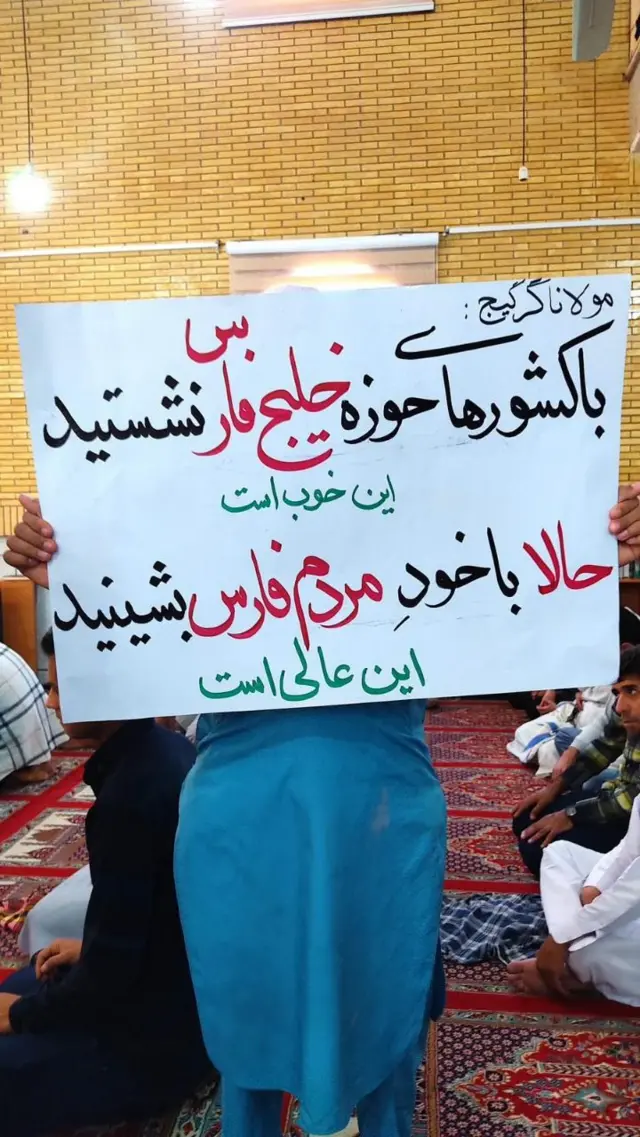 مولانا گرگیج:
با کشورهای حوزه خلیج فارس نشستید
این خوب است
حالا با خودِ مردم فارس بشینید
این عالی است